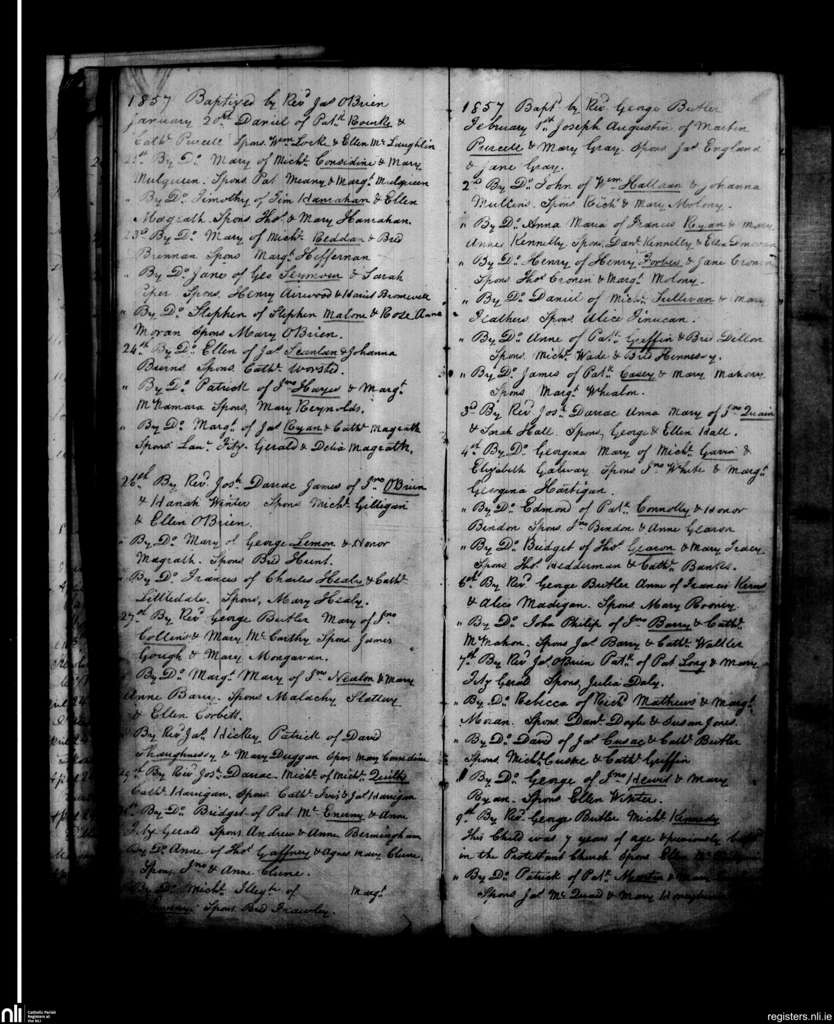 1857 Baptized by Revd Jas OBrien
January 20th Daniel of Patk Rourke &
Cathe Purcell Spons. Wm Locke & Ellen McLaughlin
By Do Mary of Michl Considine & Mary
Mulqueen. Spons Pat Meany & Margt Mulqueen
" By Do Timothy of Tim Hanrahan & Ellen
Magrath. Spons Thos & Mary Hanrahan.
23rd By Do Mary of Michl Reddan & Brd
Brennan Spons Margt Heffernan
" By Do Jane of Geo Seymour & Sarah
Spons. Henry
" By Do Stephen of Stephen Malone & Rose Anne
Moran Spons Mary OBrien.
24th By Do Ellen of Jas Scanlan & Johanna
Burns Spons. Cathe Worsted.
" By Do Patrick of Jno Hayes & Margt
McNamara Spons, Mary Reynolds.
" By Do Margt of Jas Ryan & Cathe Magrath
Spons Lau Fitz Gerald & Delia Magrath.
26th By Revd Josh Darcac James of Jno OBrien
& Hanah Winter Spons Michl Gilligan
& Ellen OBrien.
" By Do Mary of George Lemon & Honor
Magrath. Spons Brd Hunt.
" By Do Frances of Charles Healy & Cathe
Littledale. Spons, Mary Healy.
27th By Revd George Butler Mary of Jno
Collins & Mary McCarthy Spons James
Gough & Mary Mongavan.
By Do Margt Mary of Jno Nealon & Mary
Anne Barry. Spons Malachy Slattery
& Ellen Corbett.
By Revd Jas Hickey Patrick of David
Shaughnessy & Mary Duggan Spons Mary Considine
By Revd Josh Darcac Michl of Michl Quilty
Cathe Harrigan. Spons Cathe & Jas Harrigan
By Do Bridget of Pat Mc & Anne
Fitz Gerald Spons Andrew & Anne Bermingham
By Do Anne of Thos Gaffney & Agnes Mary Clune.
Spons Jno & Anne Clune.
By Do Michl of Margt
Spons Brd Frawley.
1857 Bapt by Revd George Butler
February 1st Joseph Augustin of Martin
Purcell & Mary Gray. Spons Jas England
& Jane Gray.
2nd By Do John of Wm Hallinan & Johanna
Mullins. Spons Richd & Mary Molony.
" By Do Anna Maria of Francis Ryan & Mary
Anne Kennelly Spons, Danl Kennelly & Ellen
" By Do Henry of Henry Forbes & Jane Cronin
Spons Thos Cronin & Margt Molony.
" By Do Daniel of Michl Sullivan & Mary
Spons Alice Finucan.
" By Do Anne of Patk Griffin & Brd Dillon
Spons. Michl Wade & Brd Hennessy.
" By Do James of Patk Casey & Mary
Spons Margt Whealon.
3rd By Revd Josh Darcac Anna Mary of Jno Quain
& Hall. Spons, George & Ellen Hall.
4th By Do Georgina Mary of Michl Gavin &
Elizabeth Galway Spons Jno White & Margt
Georgina Hartigan.
" By Do Edmond of Patk Connolly & Honor
Bindon Spons Jno Bindon & Anne Gearon
" By Do Bridget of Thos Gearon & Mary Tracy
Spons Thos Hedderman & Cathe Bankes.
6th By Revd George Butler Anne of Francis
& Alice Madigan. Spons Mary Rooney
" By Do John Philip of Jno Barry & Cathe
McMahon. Spons Jas Barry & Cathe
7th By Revd Jas OBrien Patk of Pat Long & Mary
Fitz Gerald Spons, Julia Daly.
" By Do Rebecca of Richd Mathews & Margt
Moran. Spons. Danl Doyle & Susan Jones.
" By Do David of Jas Cusac & Cathe Butler
Spons Michl Cusac & Cathe Griffin
By Do George of Jno Lewis & Mary
Ryan. Spons Ellen Winter.
9th By Revd George Butler Michl Kennedy
This Child was 7 years of age & previously
in the Protestant Church Spons Ellen
" By Do Patrick of Patk Martin & Mary
Spons Jas McQuad & Mary
nli
Catholic Parish
Registers at
the NLI
registers.nli.ie